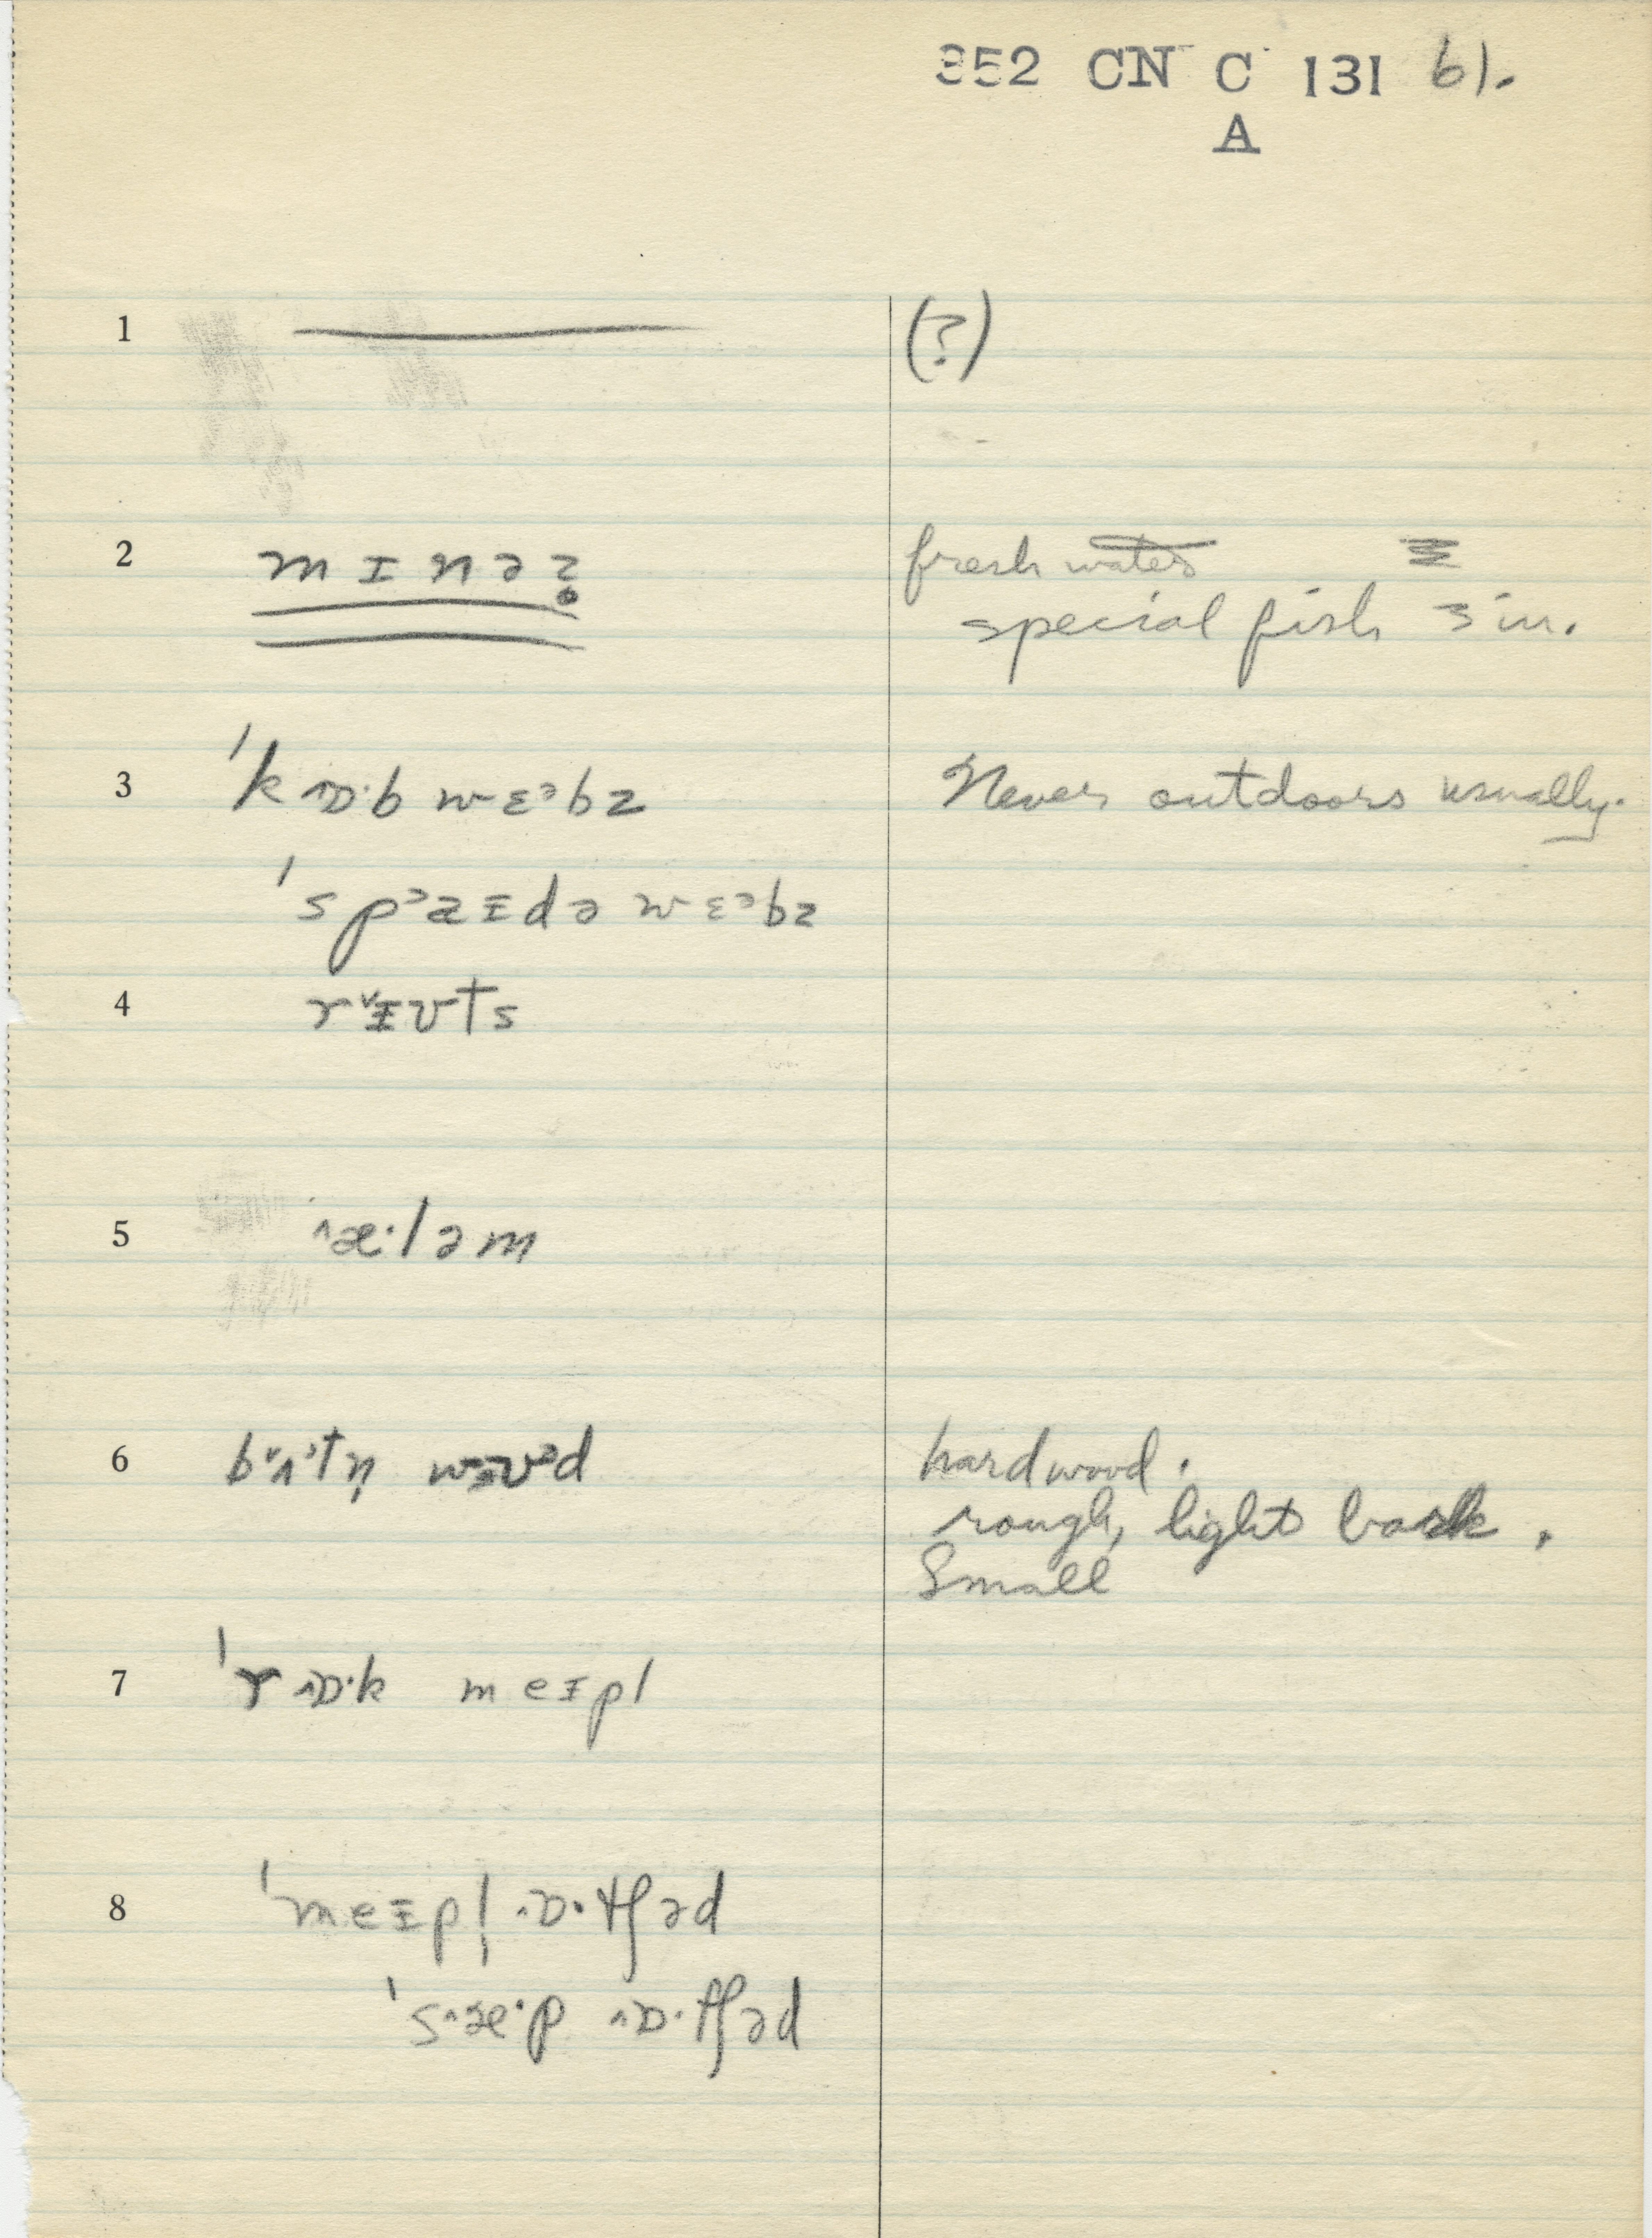 352 CN C 131 61.
A
1 (?)
2 mɪnəʔ fresh water
special fish 3 in.
3 ˈkɒ·b wɛᵊbz Never outdoors usually.
ˈspᵊaɪdə wɛᵊbz
4
5 æ·ləm
6 hardwood.
rough, light bark.
Small
7 ˈrɒ·k meɪpl
8 ˈmeɪpl̩ ɒ·tʃəd
ˈsæ·p ɒ·tʃəd